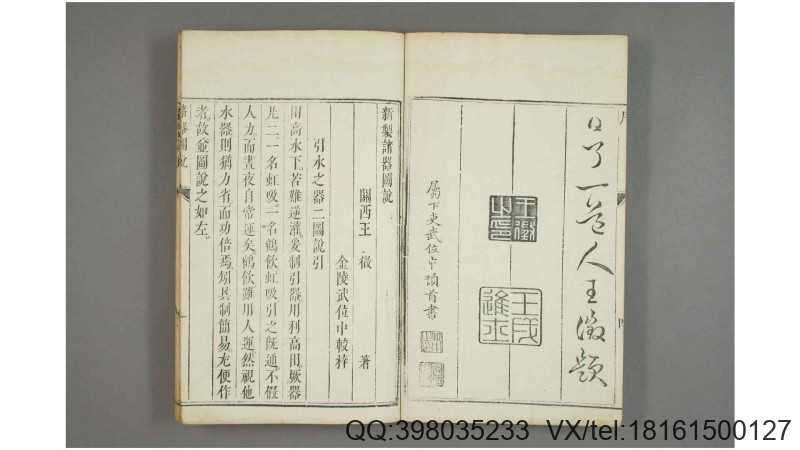 了一道人王徵題
屬下吏武位中頓首書
王徵之印
壬戌進士
新製諸器圖說
關西王徵著
金陵武位中較梓
引水之器二圖說引
田高水下若難逆灌爰制引器用利高田厥器
凡二一名虹吸一名鶴飲虹吸引之旣通不假
人力而晝夜自常運矣鶴飲雖用人運然視他
水器則猶力省而功倍焉矧其制簡易尤便作
者故僉圖說之如左
諸器圖說
QQ:398035233 VX/tel:18161500127